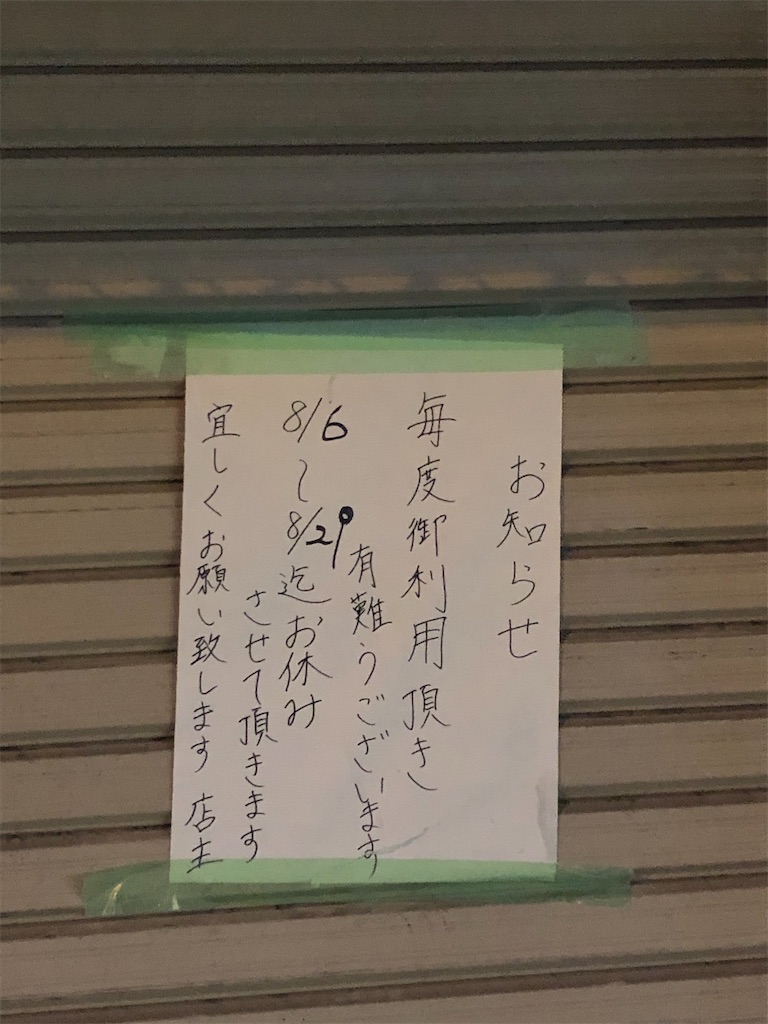 お知らせ
毎度御利用頂き
有難うございます
8/6〜8/29迄お休み
させて頂きます
宜しくお願い致します 店主